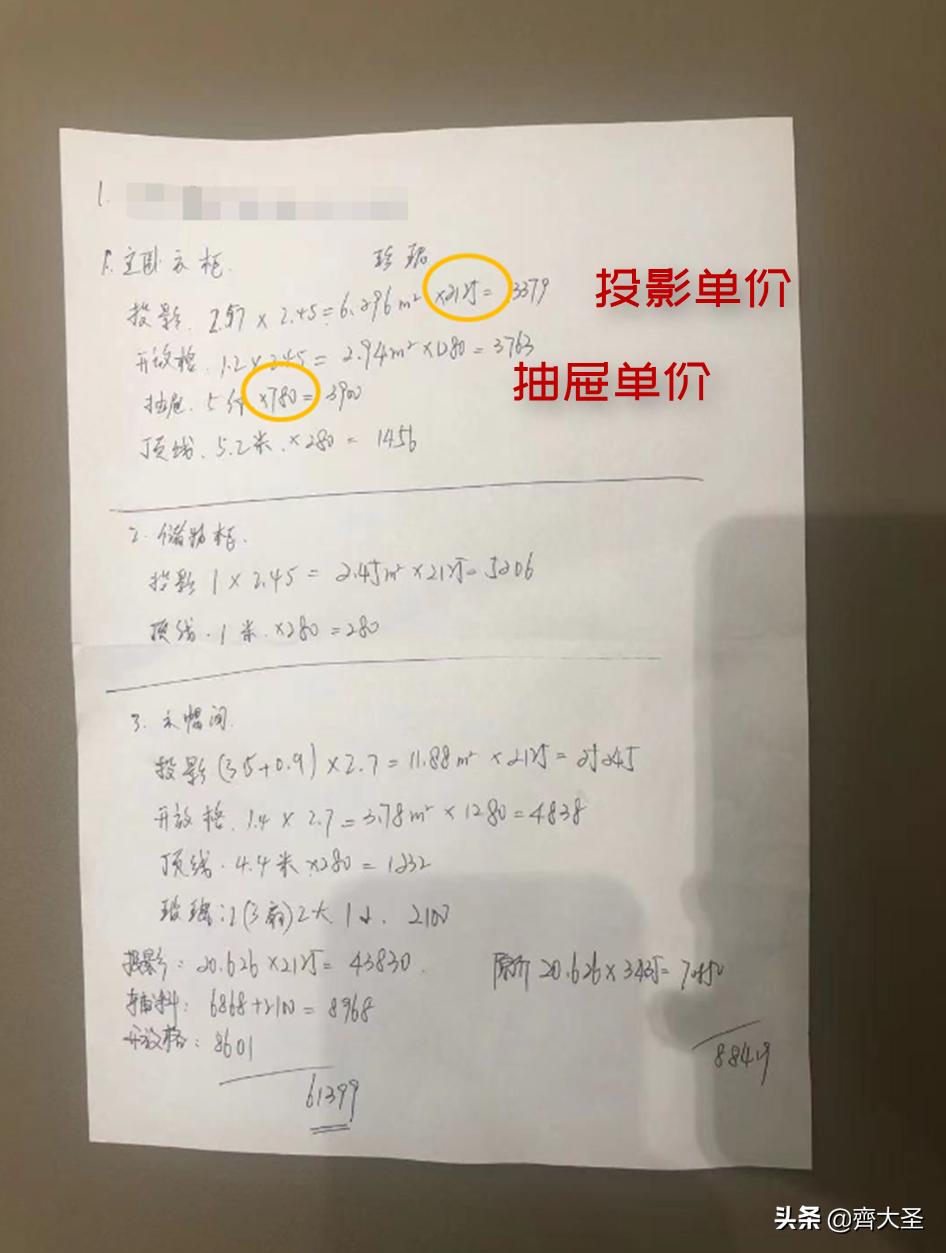 1.
1.主卧衣柜. 珍珠
投影. 2.57 × 2.45 = 6.296m² ×2125= 13379 投影单价
开放格. 1.2×2.45 = 2.94m²×1280=3763
抽屉. 5件×780= 3900 抽屉单价
顶线. 5.2米.×280= 1456
2.储物柜.
投影 1×2.45 = 2.45m²×2125=5206
顶线.1米.×280=280
3.衣帽间.
投影(3.5+0.9)×2.7=11.88m²×2125=25245
开放格.1.4×2.7=3.78m²×1280=4838
顶线.4.4米×280=1232
玻璃:2(3扇)2大.1小. 2100
投影:20.626×2125=43830. 原价20.626×3435=
辅料: 6868+2100=8968
开放格:8601
61399
88419
头条 @齊大圣